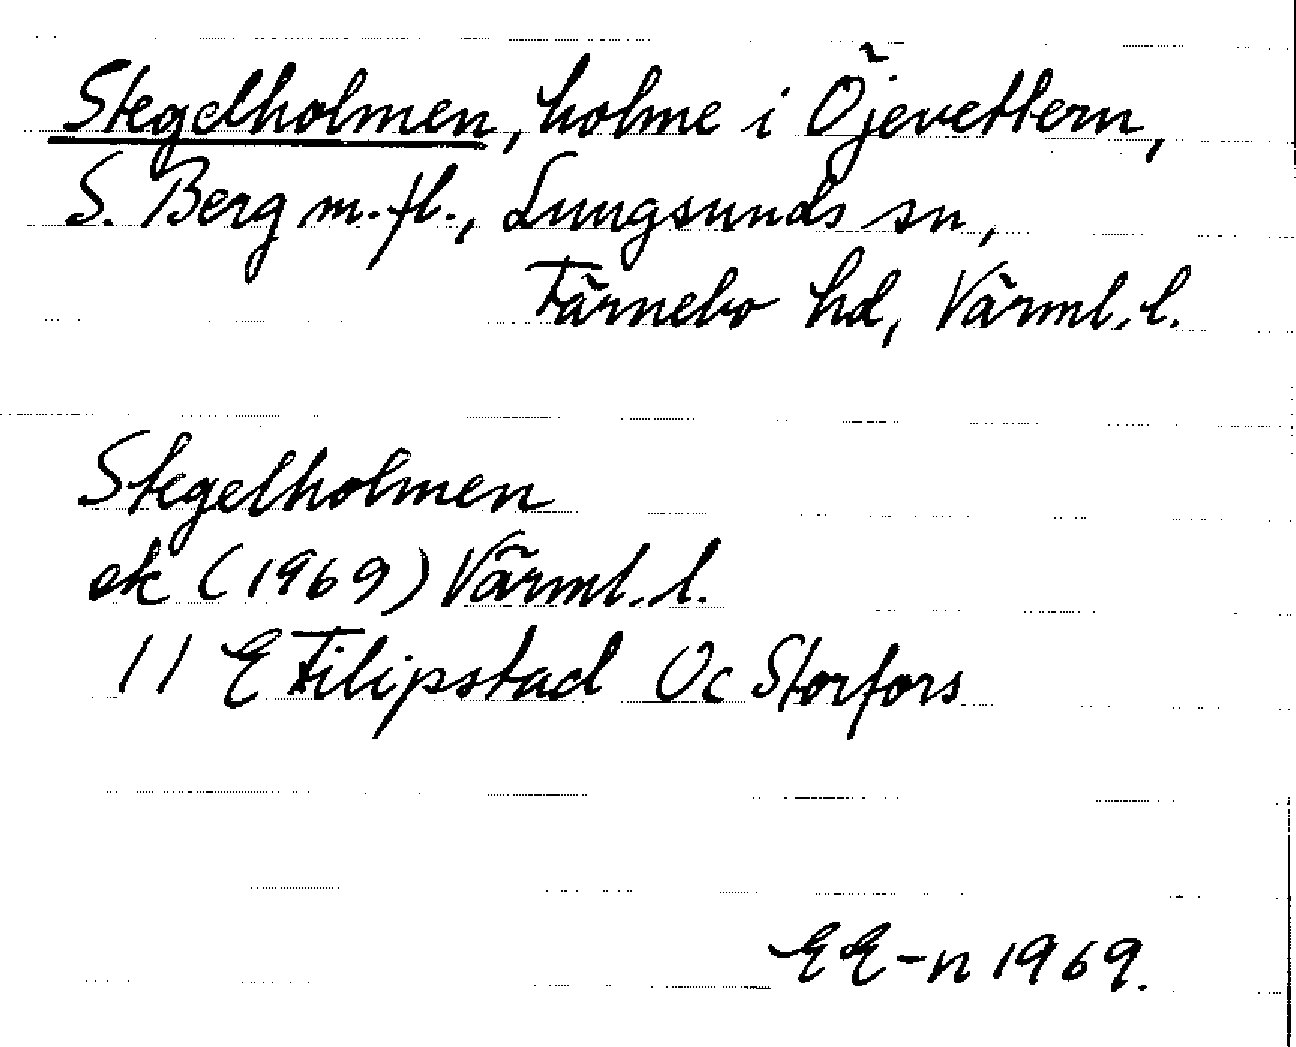 Stegelholmen, holme i Öjevettern,
S. Berg m.fl., Lungsunds sn,
Färnebo hd, Värml. l.
Stegelholmen
ek (1969) Värml. l.
11 E Filipstad Oc Storfors
EE-n 1969.